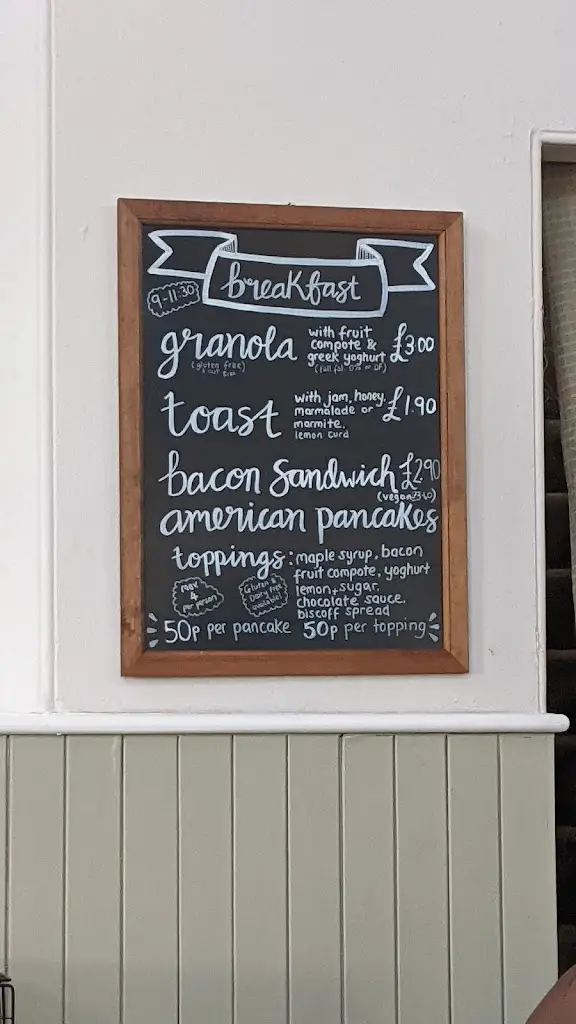 breakfast
9-11:30
granola with fruit compote & greek yoghurt £3.00
(gluten free)
toast with jam, honey, marmalade or marmite, lemon curd £1.90
bacon sandwich £2.90
(vegan £3.40)
american pancakes
toppings: maple syrup, bacon
fruit compote, yoghurt
lemon + sugar,
chocolate sauce,
biscoff spread
max 4 per person
Gluten & Dairy free available!
50p per pancake 50p per topping